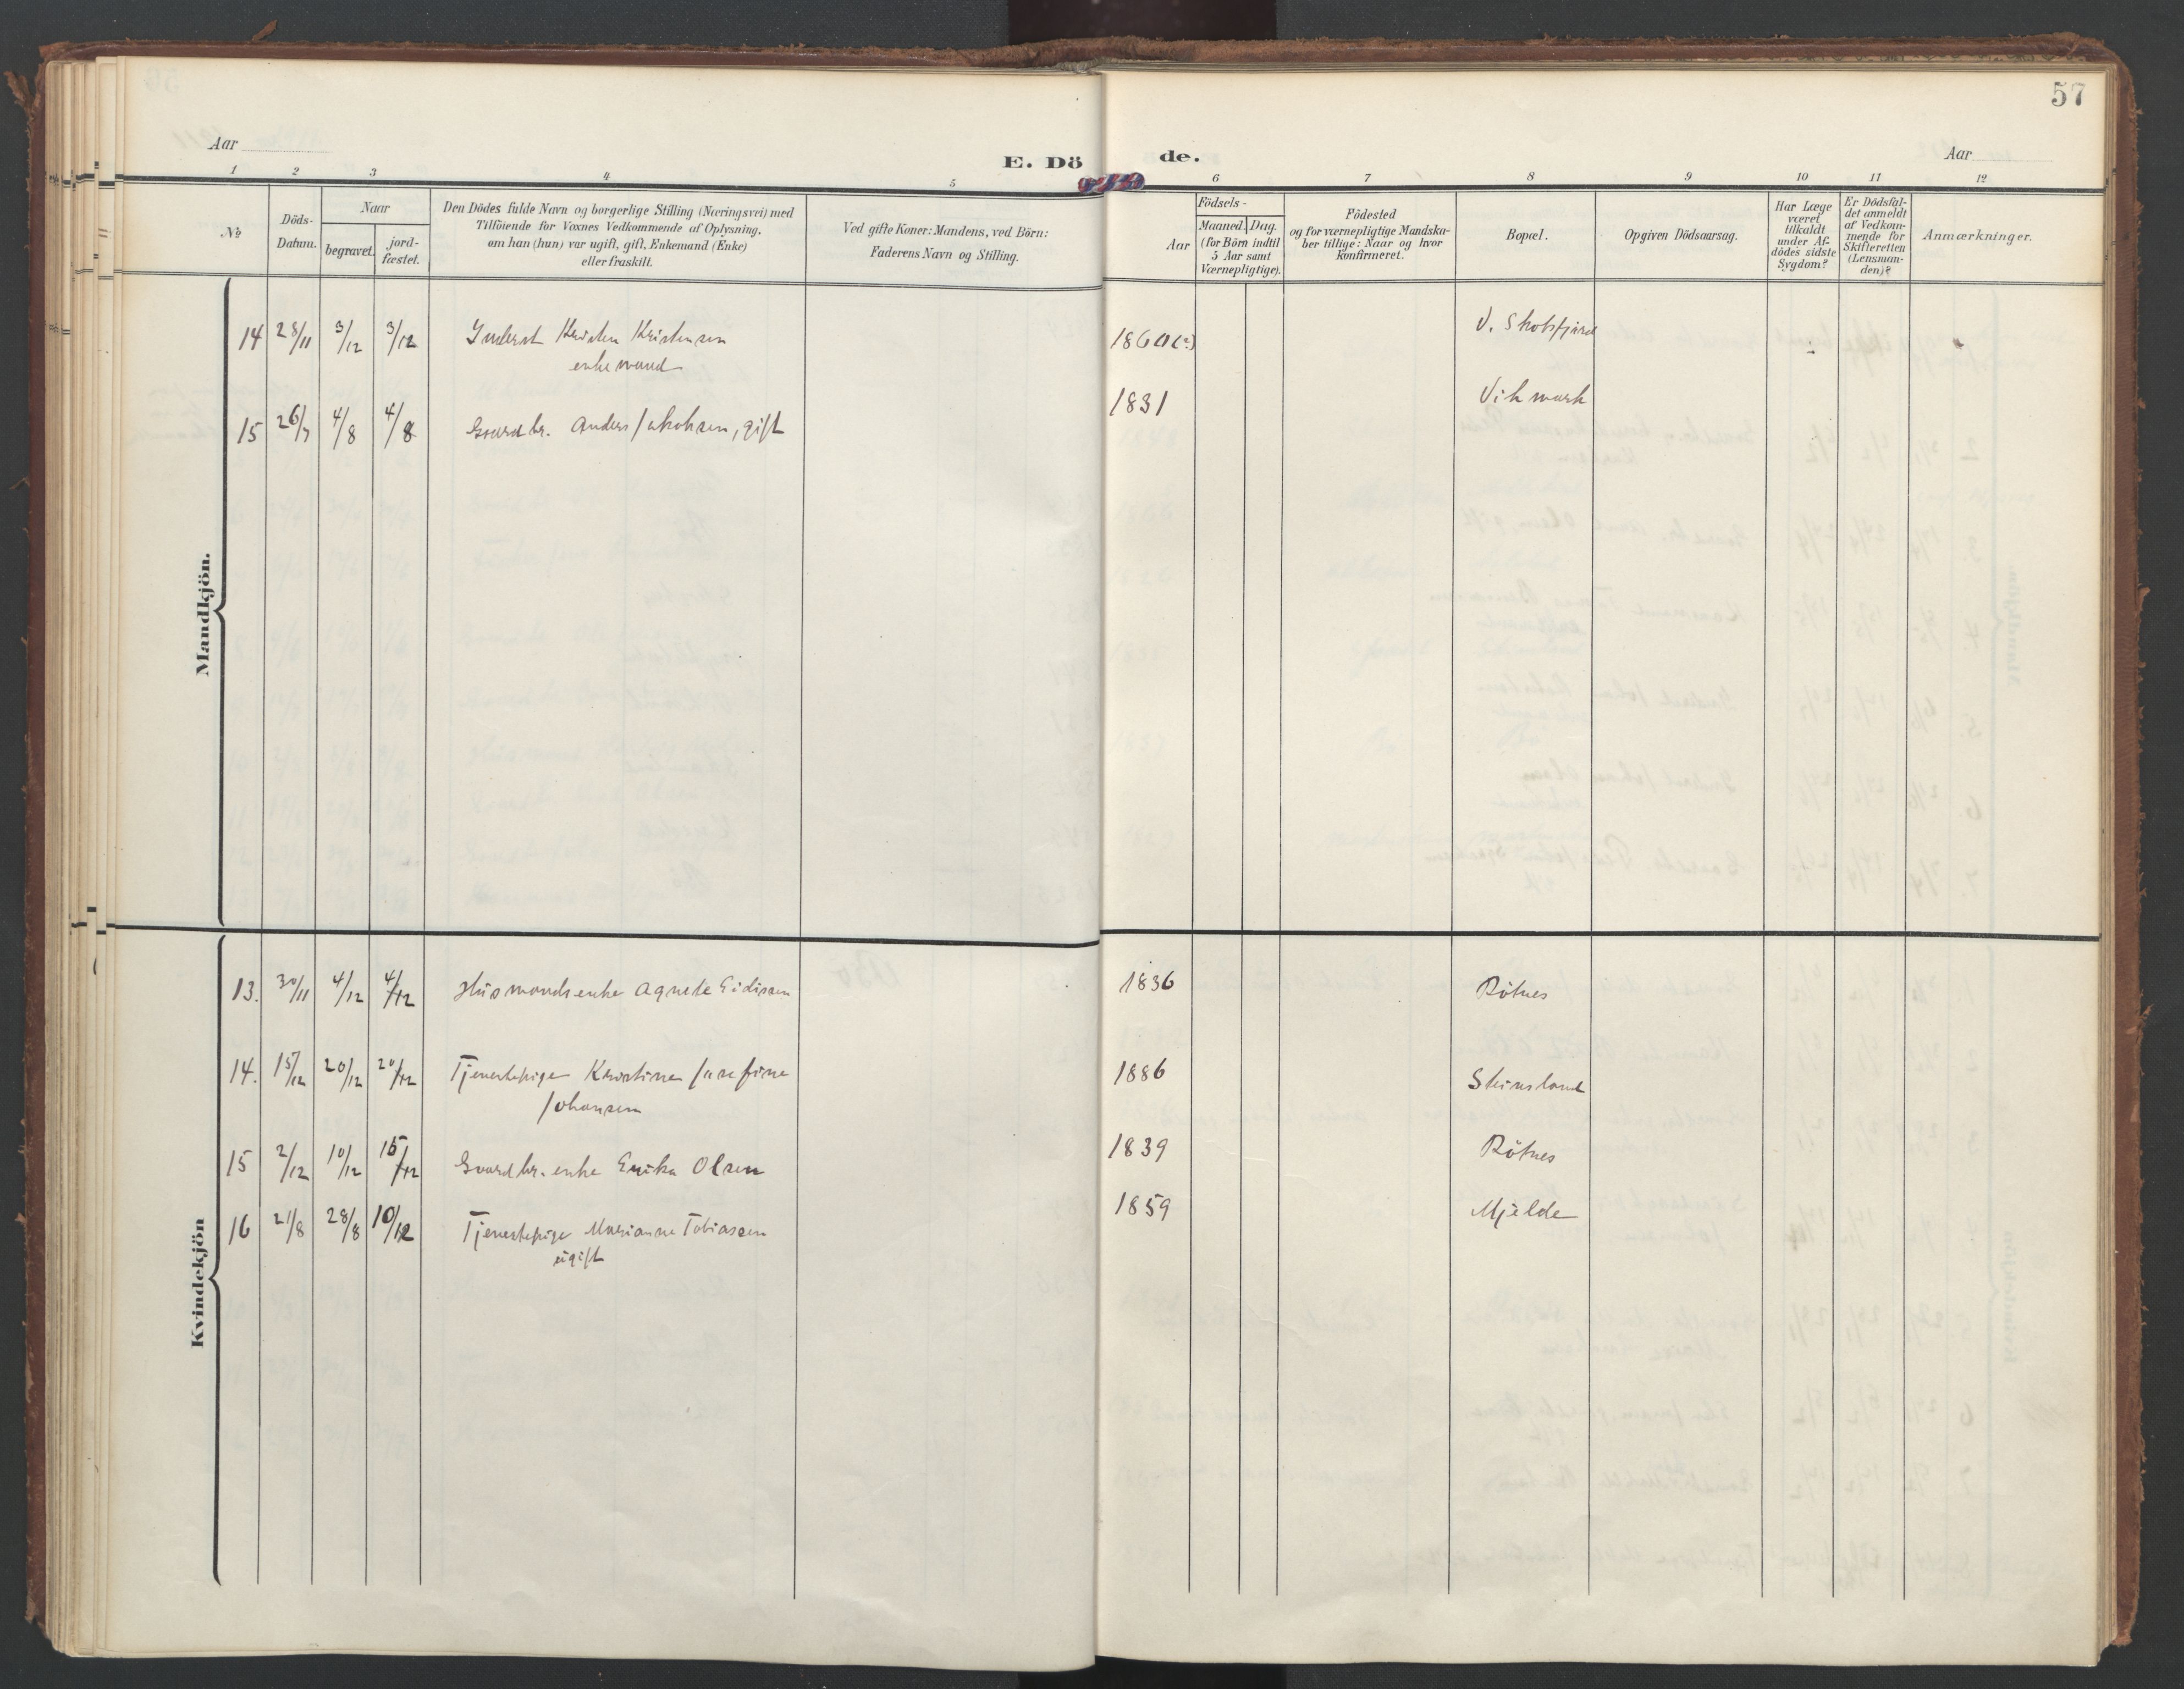 57
Aar
E. Dö
de.
Aar
1 2 3 4 5 6 7 8 9 10 11 12
№
Döds-
Datum.
Naar
begravet.
jord-
fæstet.
Den Dödes fulde Navn og borgerlige Stilling (Næringsvei) med
Tilföiende for Voxnes Vedkommende af Oplysning,
om han (hun) var ugift, gift, Enkemand (Enke)
eller fraskilt.
Ved gifte Koner: Mandens, ved Börn:
Faderens Navn og Stilling.
Födsels-
Aar
Maaned. Dag.
(for Börn indtil
5 Aar samt
Værnepligtige).
Födested
og for værnepligtige Mandska-
ber tillige: Naar og hvor
konfirmeret.
Bopæl.
Opgiven Dödsaarsag.
Har Læge
været
tilkaldt
under Af-
dödes sidste
Sygdom?
Er Dödsfal-
det anmeldt
af Vedkom-
mende for
Skifteretten
(Lensman-
den)?
Anmærkninger.
Mandkjön.
14 28/11 3/12 3/12 Inderst Kristen Kristensen 1860(?) V. Skotsfjord
enkemand
15 26/7 4/8 4/8 Gaardbr. Anders Jakobsen, gift 1831 Vikmark
Kvindekjön
13. 30/11 4/12 4/12 Husmandsenke Agnete Eidissen 1836 Rötnes
14. 15/12 20/12 20/12 Tjenestepige Kristine Josefine 1886 Steinsland
Johansen
15 2/12 10/12 15/12 Gaardbr. enke Erika Olsen 1839 Rötnes
16 21/8 28/8 10/12 Tjenestepige Marianne Tobiassen 1859 Mjelde
ugift